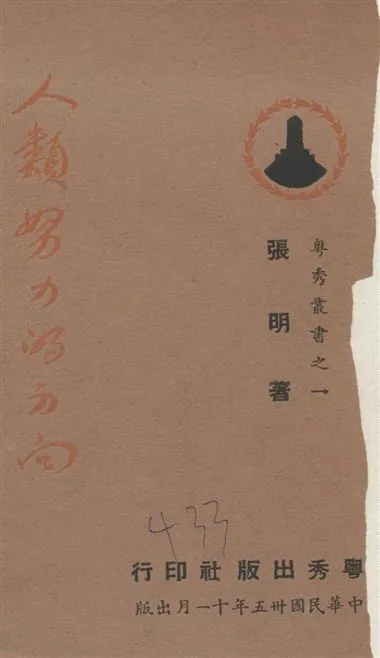 粤秀叢書之一
張明著
人類努力的方向
433
粵秀出版社印行
中華民國卅五年十一月出版